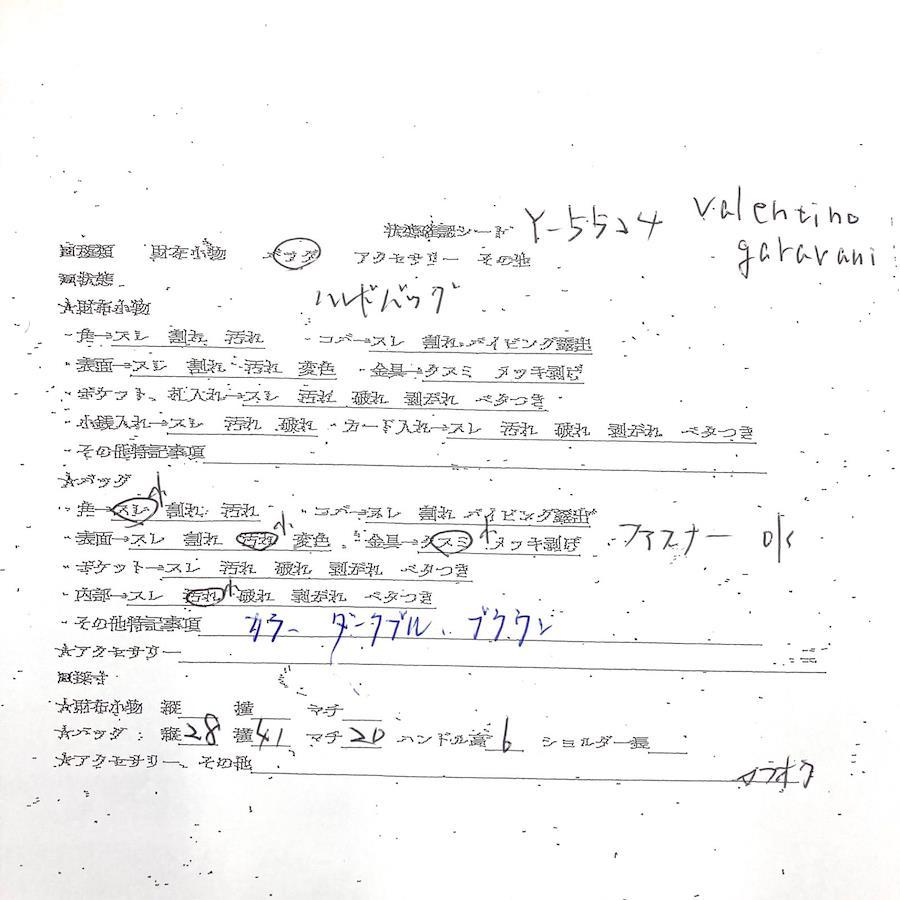 状態確認シート Y-5524 valentino
garavani
種類 財布小物 バッグ アクセサリー その他
状態
ハンドバッグ
☆財布小物
・角→スレ 割れ 汚れ ・コバ→スレ 割れ パイピング露出
・表面→スレ 割れ 汚れ 変色 ・金具→クスミ メッキ剥げ
・ポケット、札入れ→スレ 汚れ 破れ 剥がれ ベタつき
・小銭入れ→スレ 汚れ 破れ ・カード入れ→スレ 汚れ 破れ 剥がれ ベタつき
・その他特記事項
☆バッグ
・角→スレ小 割れ 汚れ ・コバ→スレ 割れ パイピング露出
・表面→スレ 割れ 汚れ小 変色 ・金具→クスミ小 メッキ剥げ ファスナー ok
・ポケット→スレ 汚れ 破れ 剥がれ ベタつき
・内部→スレ 汚れ小 破れ 剥がれ ベタつき
・その他特記事項 カラー ダークブル、ブラウン
☆アクセサリー
採寸
☆財布小物 縦 横 マチ
☆バッグ:縦28 横41 マチ20 ハンドル高6 ショルダー長
☆アクセサリー、その他